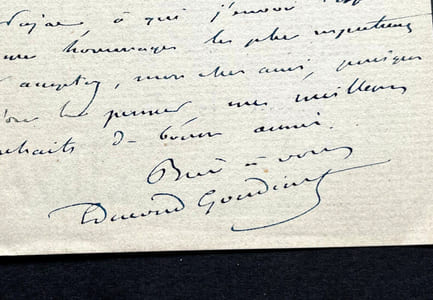 à qui j'envoie
hommages les plus respectueux
acceptez, mon cher ami, puisque
permet mes meilleurs
souhaits de bonne année.
Bien à vous
Edmond Gondinet